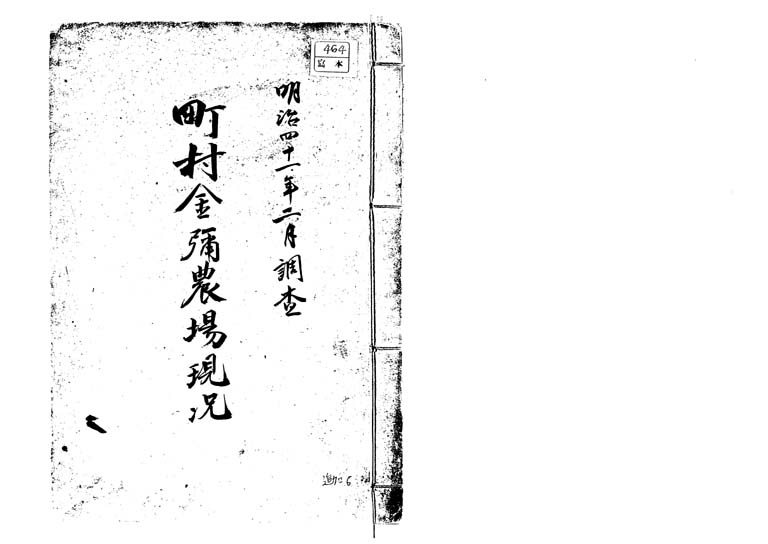 464
寫本
明治四十一年二月調査
町村金彌農場現况
追加6